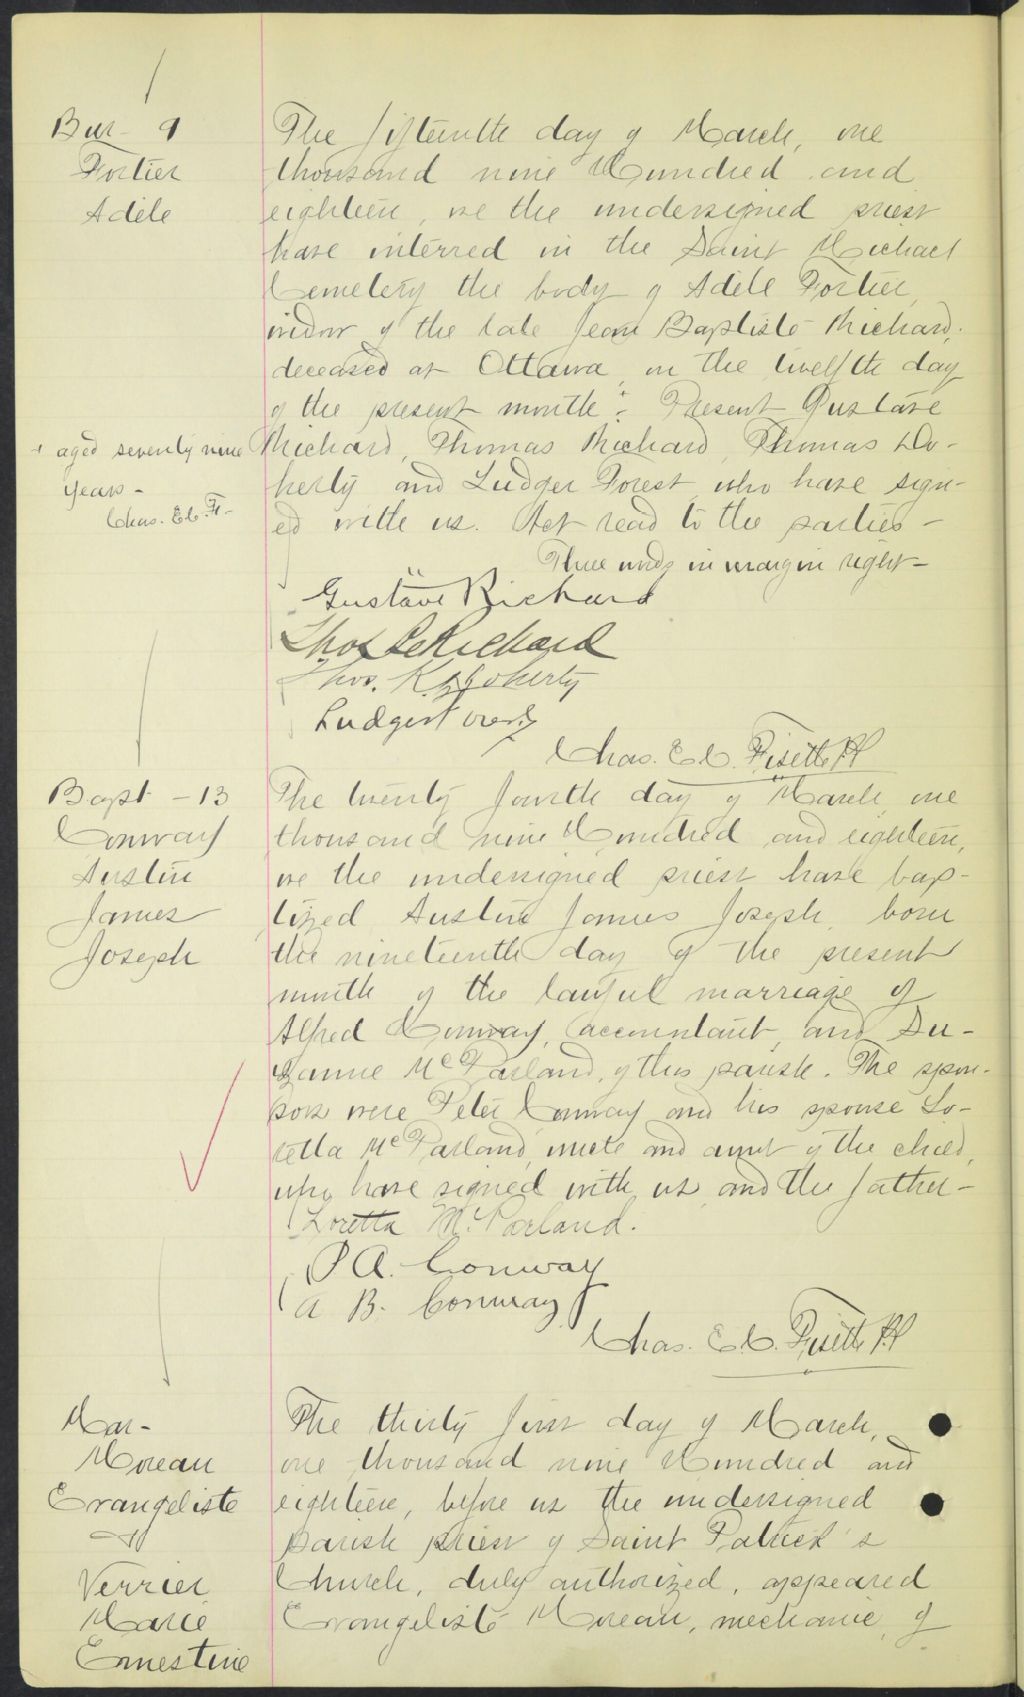 Bur - 9
Fortier
Adèle
The fifteenth day of March, one
thousand nine Hundred and
eighteen, we the undersigned priest
have interred in the Saint Michael
Cemetery the body of Adèle Fortier,
widow of the late Jean Baptiste Richard,
deceased at Ottawa, on the twelfth day
of the present month +. Present Gustave
+ aged seventy nine
years -
Chas. E.C. F. -
Richard, Thomas Richard, Thomas Do-
herty and Ludger Forest who have sign-
ed with us. Act read to the parties -
Three words in margin right -
Gustave Richard
Thos Richard
Thos. K. Doherty
Ludger Forest
Chas. E.C. Fisette P.P
Bapt - 13
Conway
Austin
James
Joseph
The twenty fourth day of March, one
thousand nine Hundred and eighteen,
we the undersigned priest have bap-
tized Austin James Joseph, born
the nineteenth day of the present
month of the lawful marriage of
Alfred Conway, accountant, and Su-
zanne McParland, of this parish. The spon-
sors were Peter Conway and his spouse Lo-
retta McParland, uncle and aunt of the child,
who have signed with us and the father -
Loretta McParland.
P A. Conway
A B. Conway
Chas. E.C. Fisette P.P
Mar -
Moreau
Evangeliste
&
Verrier
Marie
Ernestine
The thirty first day of March,
one thousand nine Hundred and
eighteen, before us the undersigned
parish priest of Saint Patrick's
Church, duly authorized, appeared
Evangeliste Moreau, mechanic, of